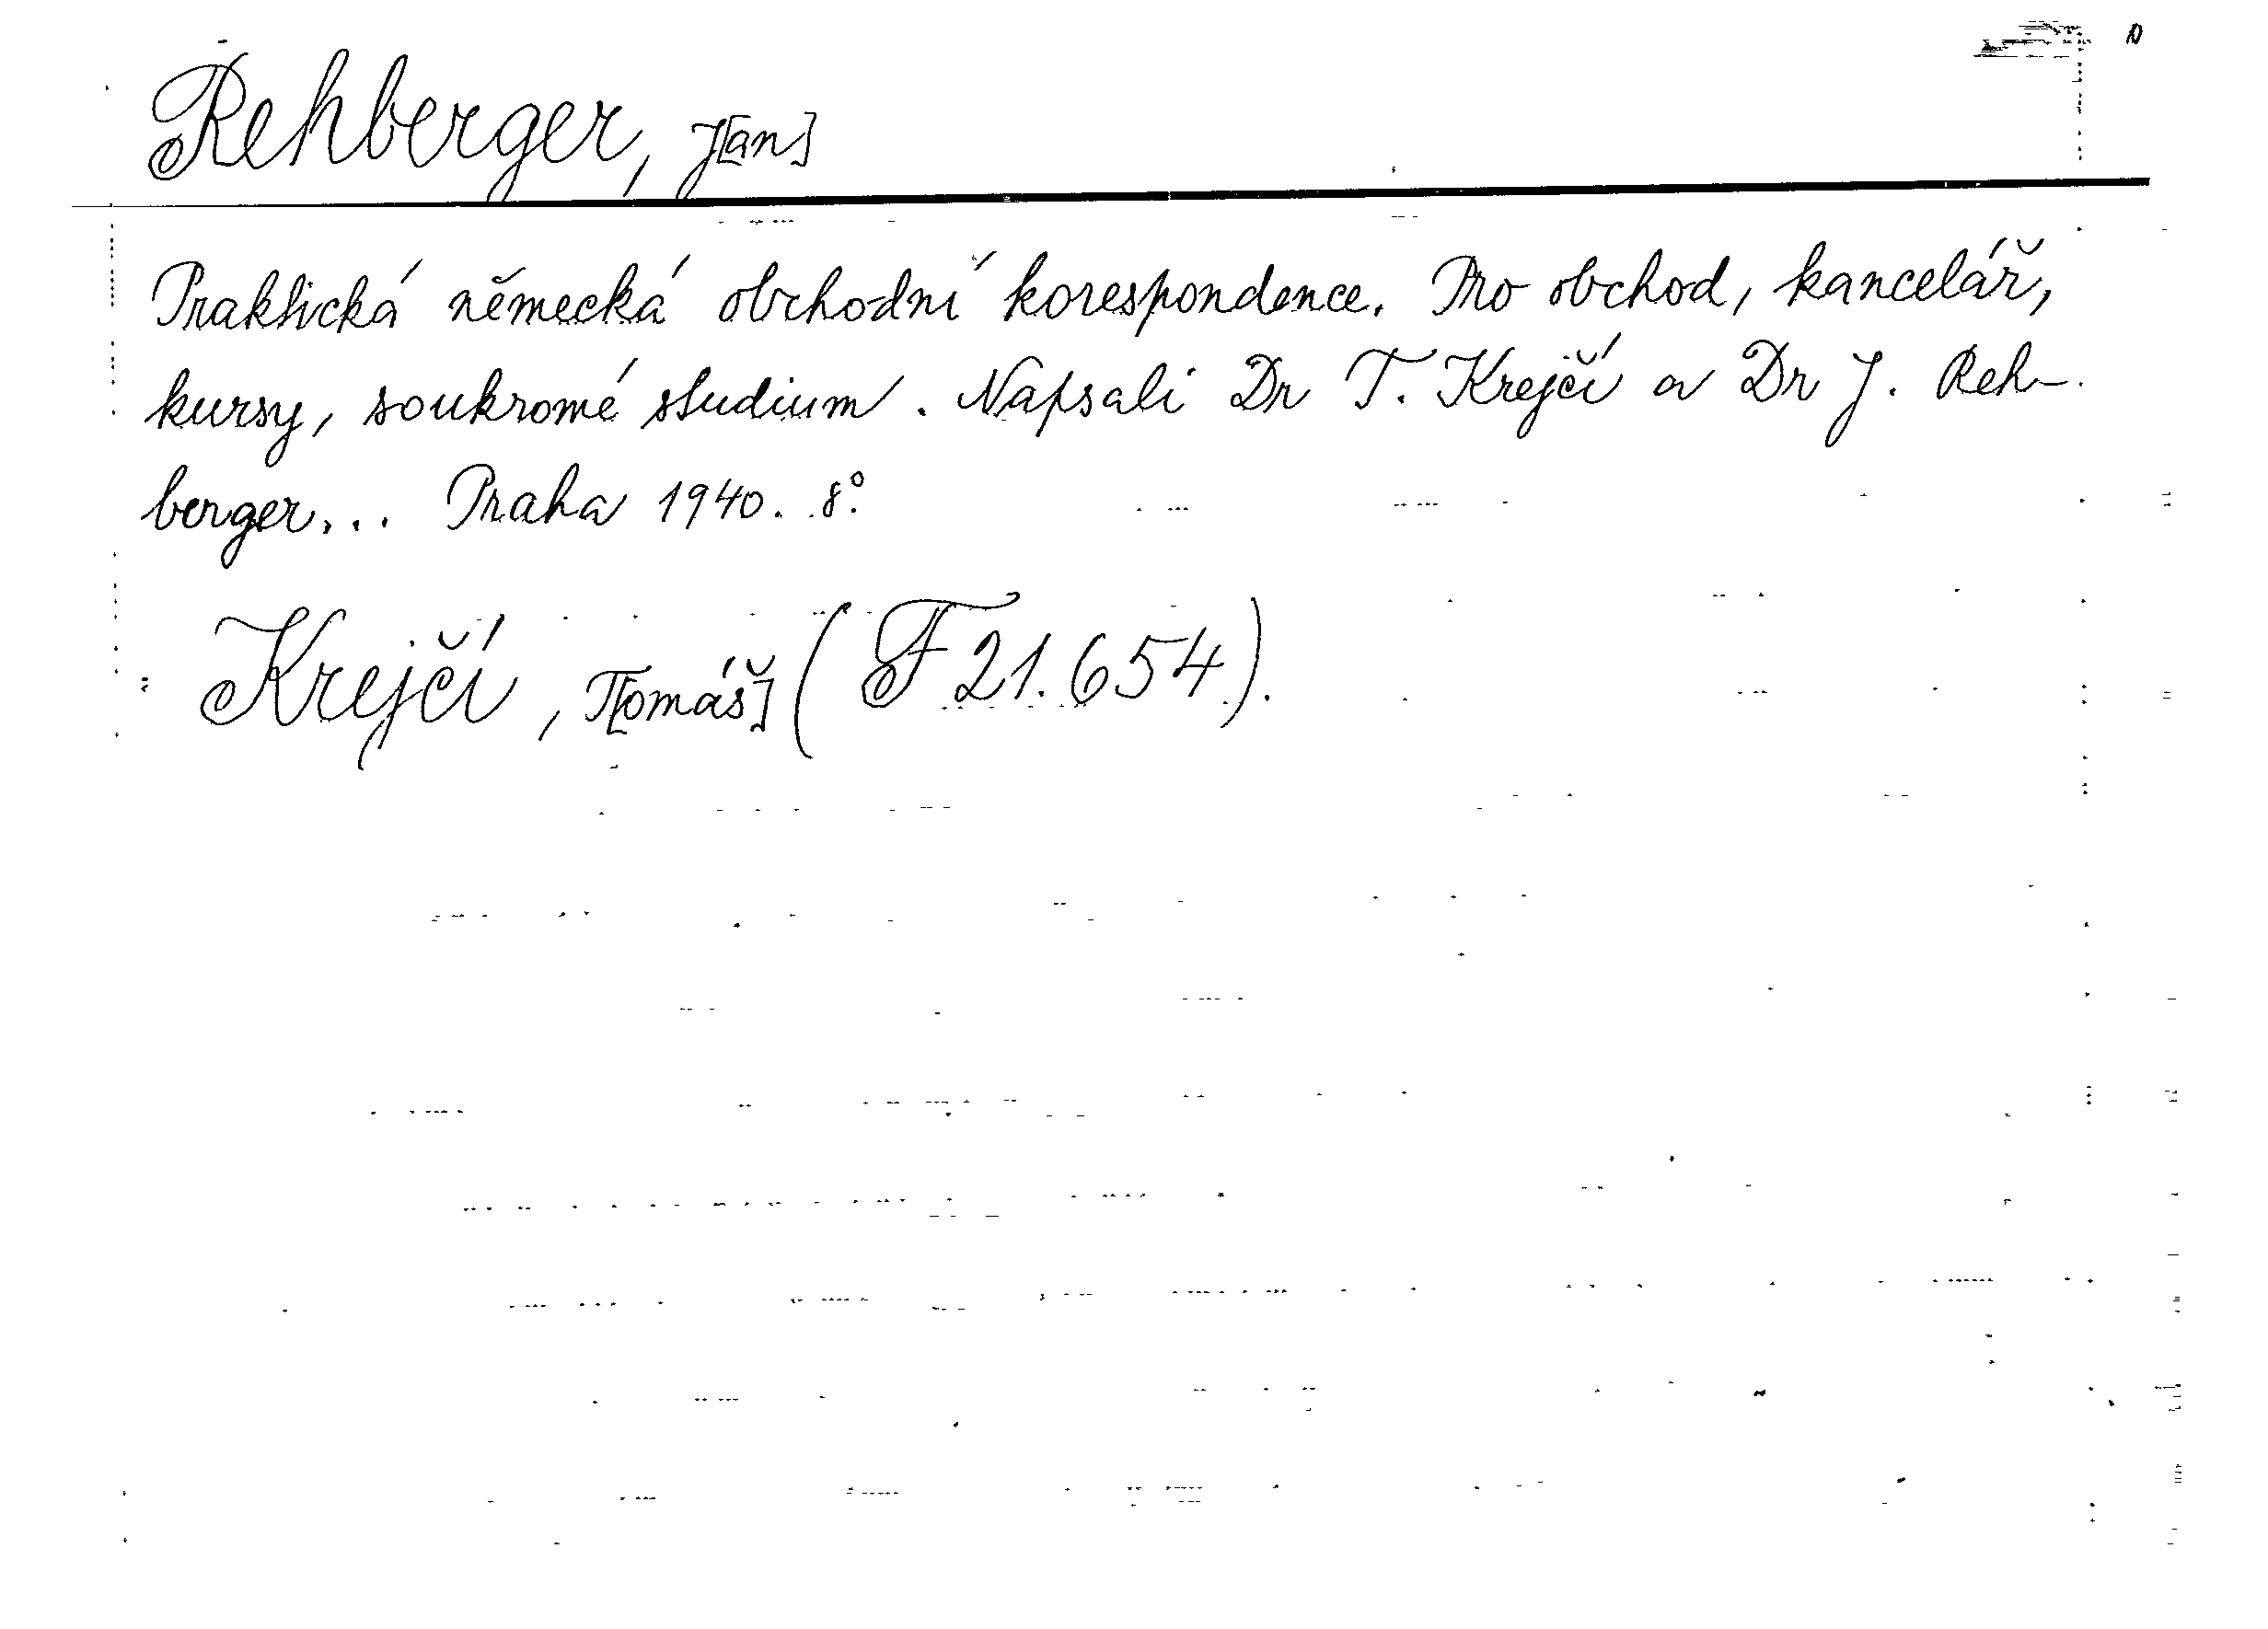 Rehberger, J[an]
Praktická německá obchodní korespondence. Pro obchod, kancelář,
kursy, soukromé studium. Napsali Dr T. Krejčí a Dr J. Reh-
berger... Praha 1940. 8°.
Krejčí, T[omáš] (F 21.654).